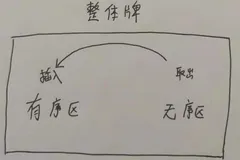 整体牌
插入 取出
有序区 无序区